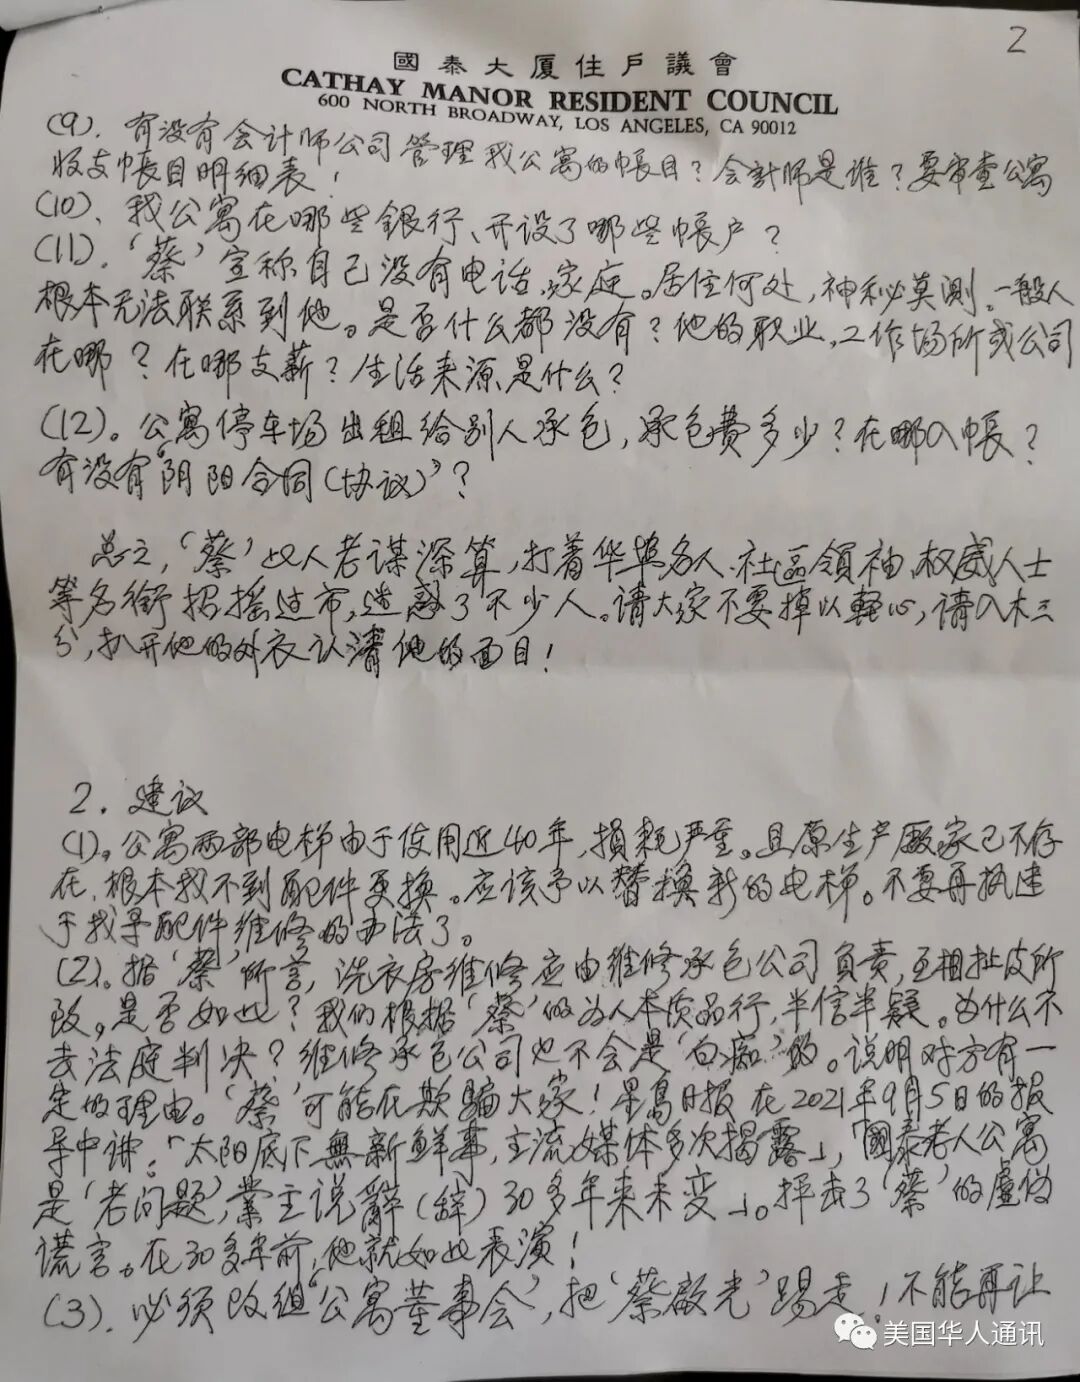 2
國泰大厦住戶議會
CATHAY MANOR RESIDENT COUNCIL
600 NORTH BROADWAY, LOS ANGELES, CA 90012
(9). 有没有会计师公司管理我公寓的帳目？会計师是谁？要审查公寓
收支帳目明细表！
(10)、我公寓在哪些銀行、开设了哪些帳户？
(11).‘蔡’宣称自己没有电话、家庭。居住何处，神秘莫测。一般人
根本无法联系到他。是否什么都没有？他的职业，工作场所或公司
在哪？在哪支薪？生活来源是什么？
(12)。公寓停车场出租给别人承包，承包费多少？在哪入帳？
有没有“阴阳合同(协议)”？
总之，‘蔡’此人老谋深算，打着华埠名人、社區領袖、权威人士
等名銜招摇过市，迷惑了不少人。请大家不要掉以輕心，请入木三
分，扒开他的外衣认清他的面目！
2. 建议
(1)。公寓两部电梯由于使用近40年，損耗严重。且原生产廠家已不存
在，根本找不到配件更换。应该予以替換新的电梯。不要再执迷
于找寻配件维修的办法了。
(2)。据‘蔡’所言，洗衣房维修应由维修承包公司負责，互相扯皮所
致。是否如此？我们根据‘蔡’的为人本质品行，半信半疑。为什么不
去法庭判决？维修承包公司也不会是‘白痴’的。说明对方有一
定的理由。‘蔡’可能在欺騙大家！星島日报在2021年9月5日的报
导中讲：「太阳底下無新鮮事，主流媒体多次揭露」，「國泰老人公寓
是‘老问题’，業主说辭(辞)30多年来未变」。抨击了‘蔡’的虚伪
谎言。在30多年前，他就如此表演！
(3). 必须改组“公寓董事会”，把‘蔡啟光’踢走！不能再让
美国华人通讯